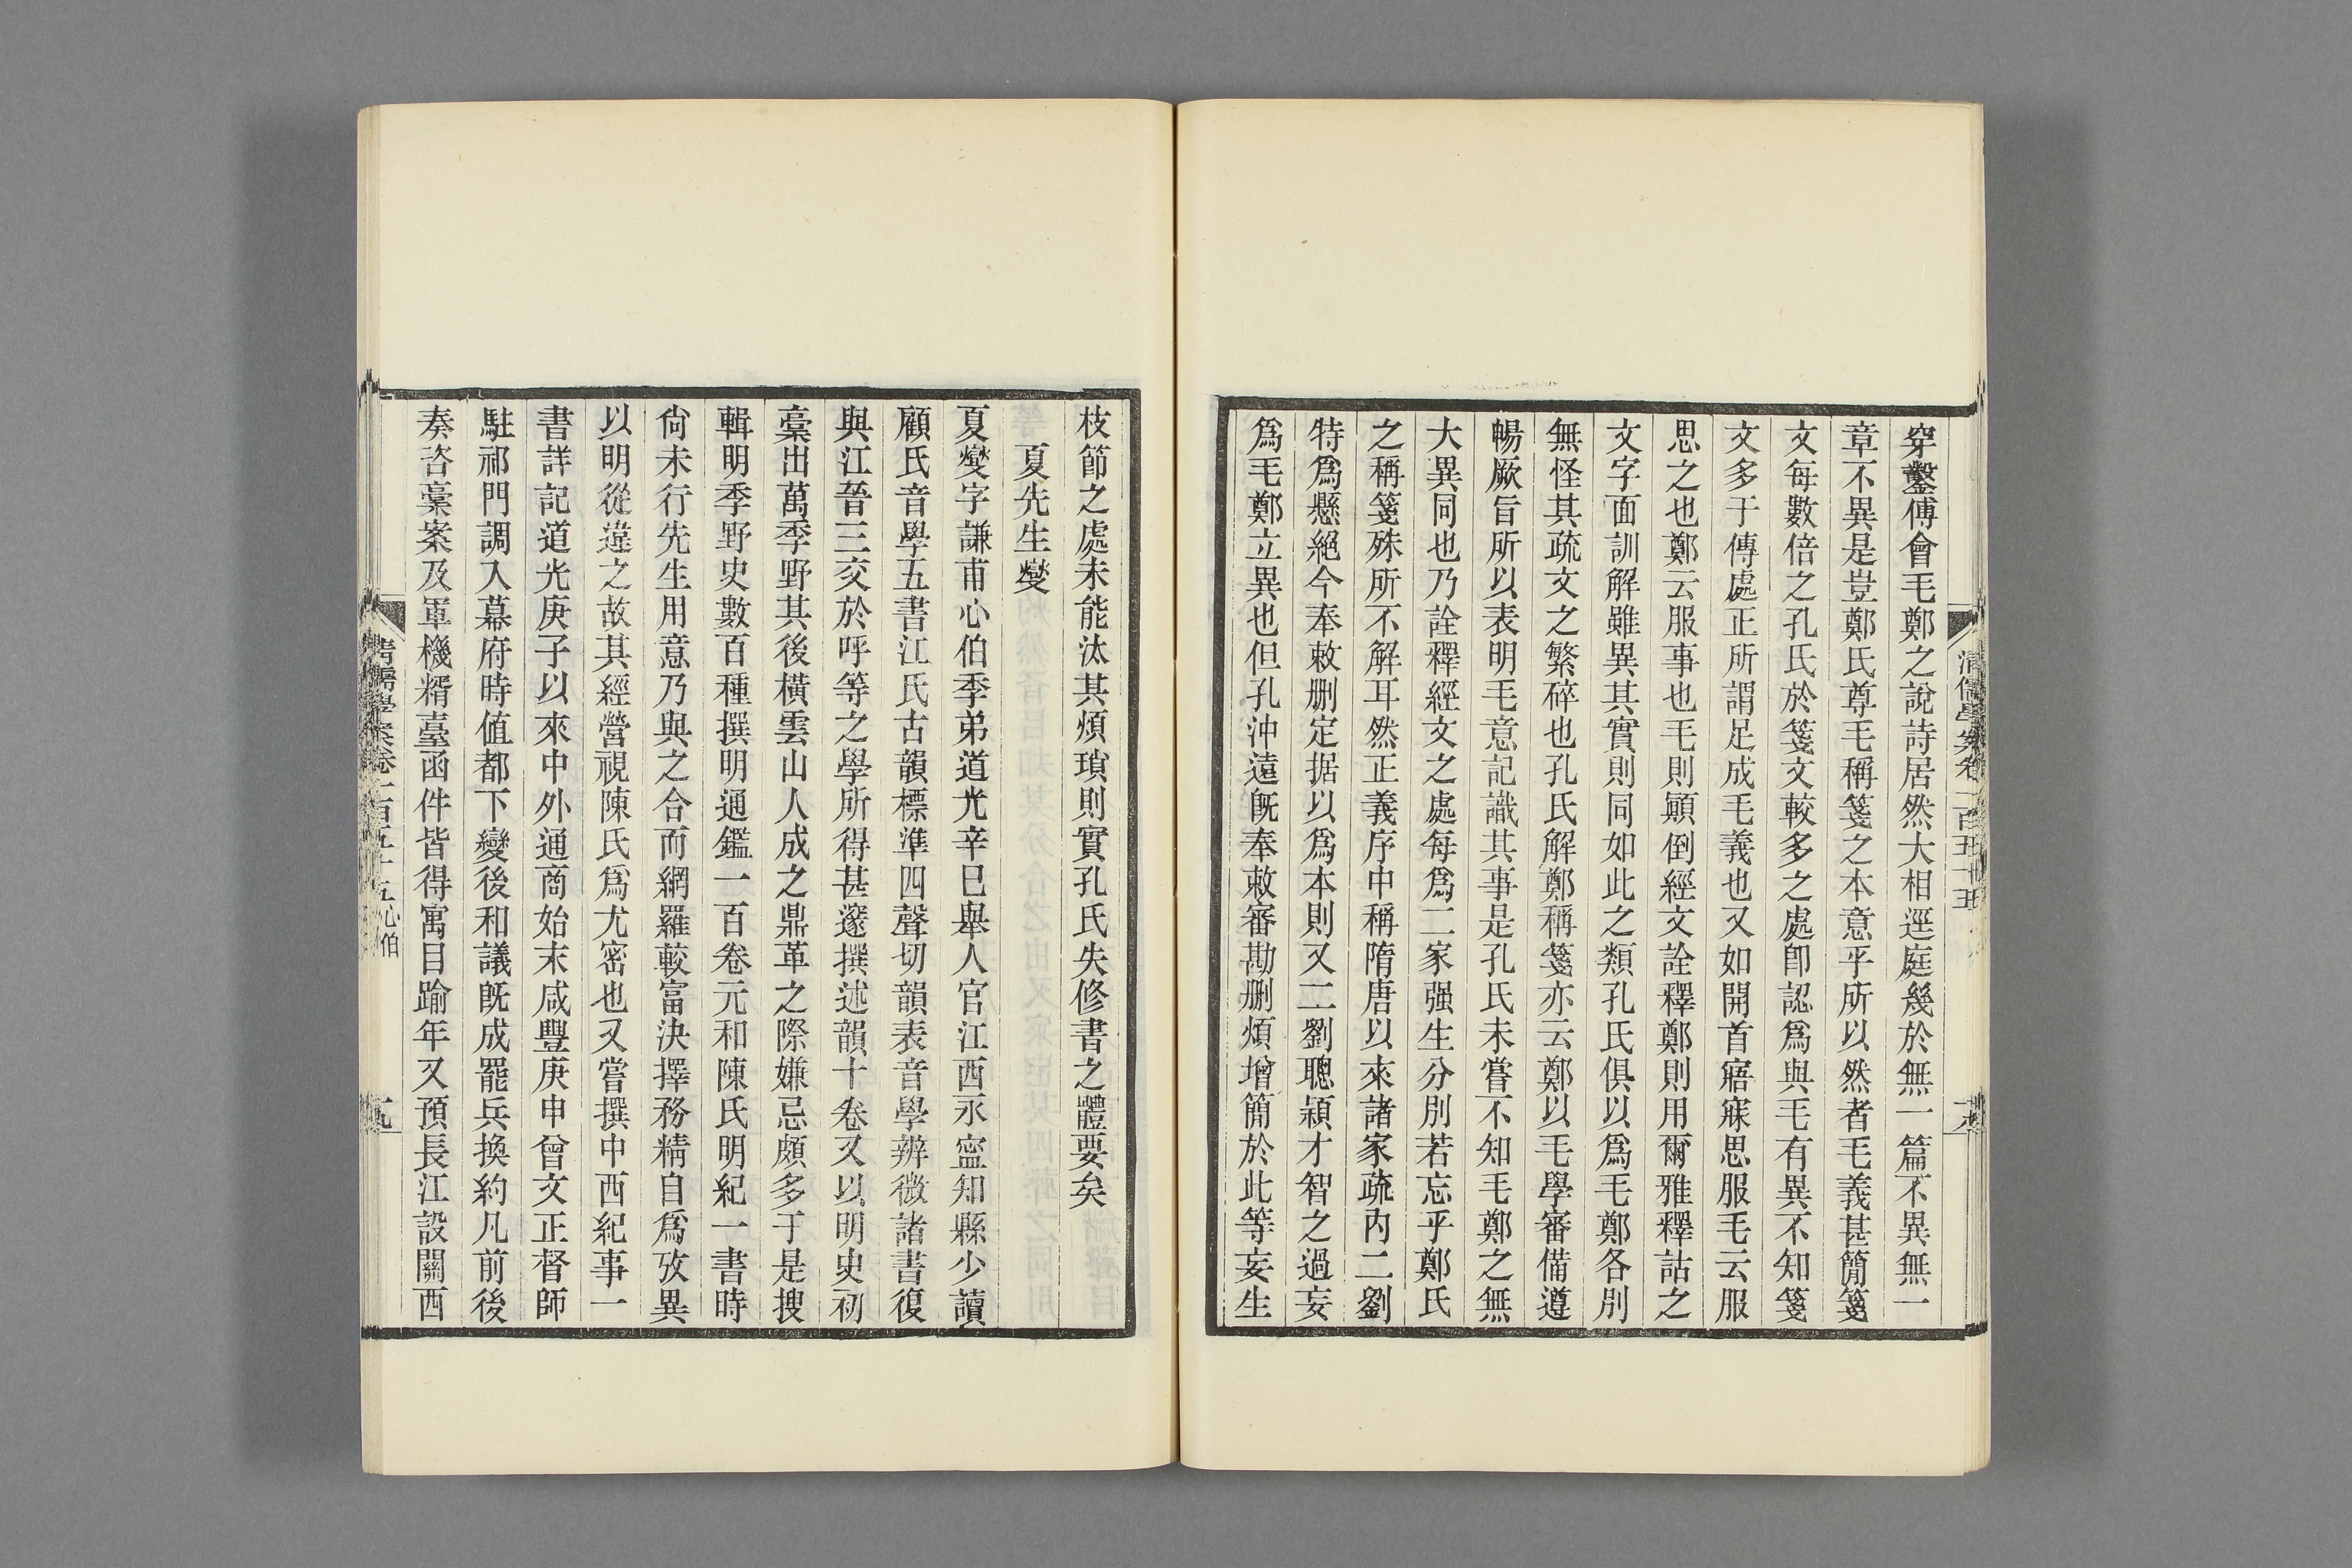 清儒學案卷一百五十五
穿鑿傅會毛鄭之說詩居然大相逕庭幾於無一篇不異無一
章不異是豈鄭氏尊毛稱箋之本意乎所以然者毛義甚簡箋
文每數倍之孔氏於箋文較多之處卽認爲與毛有異不知箋
文多于傳處正所謂足成毛義也又如開首寤寐思服毛云服
思之也鄭云服事也毛則顚倒經文詮釋鄭則用爾雅釋詁之
文字面訓解雖異其實則同如此之類孔氏俱以爲毛鄭各別
無怪其疏文之繁碎也孔氏解鄭稱箋亦云鄭以毛學審備遵
暢厥旨所以表明毛意記識其事是孔氏未嘗不知毛鄭之無
大異同也乃詮釋經文之處每爲二家强生分別若忘乎鄭氏
之稱箋殊所不解耳然正義序中稱隋唐以來諸家疏內二劉
特爲懸絕今奉敕刪定据以爲本則又二劉聰穎才智之過妄
爲毛鄭立異也但孔沖遠旣奉敕審勘刪煩增簡於此等妄生
枝節之處未能汰其煩瑣則實孔氏失修書之體要矣
夏先生燮
夏燮字謙甫心伯季弟道光辛巳舉人官江西永寍知縣少讀
顧氏音學五書江氏古韻標準四聲切韻表音學辨微諸書復
與江晉三交於呼等之學所得甚邃撰述韻十卷又以明史初
稾出萬季野其後橫雲山人成之鼎革之際嫌忌頗多于是搜
輯明季野史數百種撰明通鑑一百卷元和陳氏明紀一書時
尙未行先生用意乃與之合而網羅較富決擇務精自爲攷異
以明從違之故其經營視陳氏爲尤密也又嘗撰中西紀事一
書詳記道光庚子以來中外通商始末咸豐庚申曾文正督師
駐祁門調入幕府時值都下變後和議旣成罷兵換約凡前後
奏咨稾案及軍機糈臺函件皆得寓目踰年又預長江設關西
清儒學案卷一百五十五 心伯